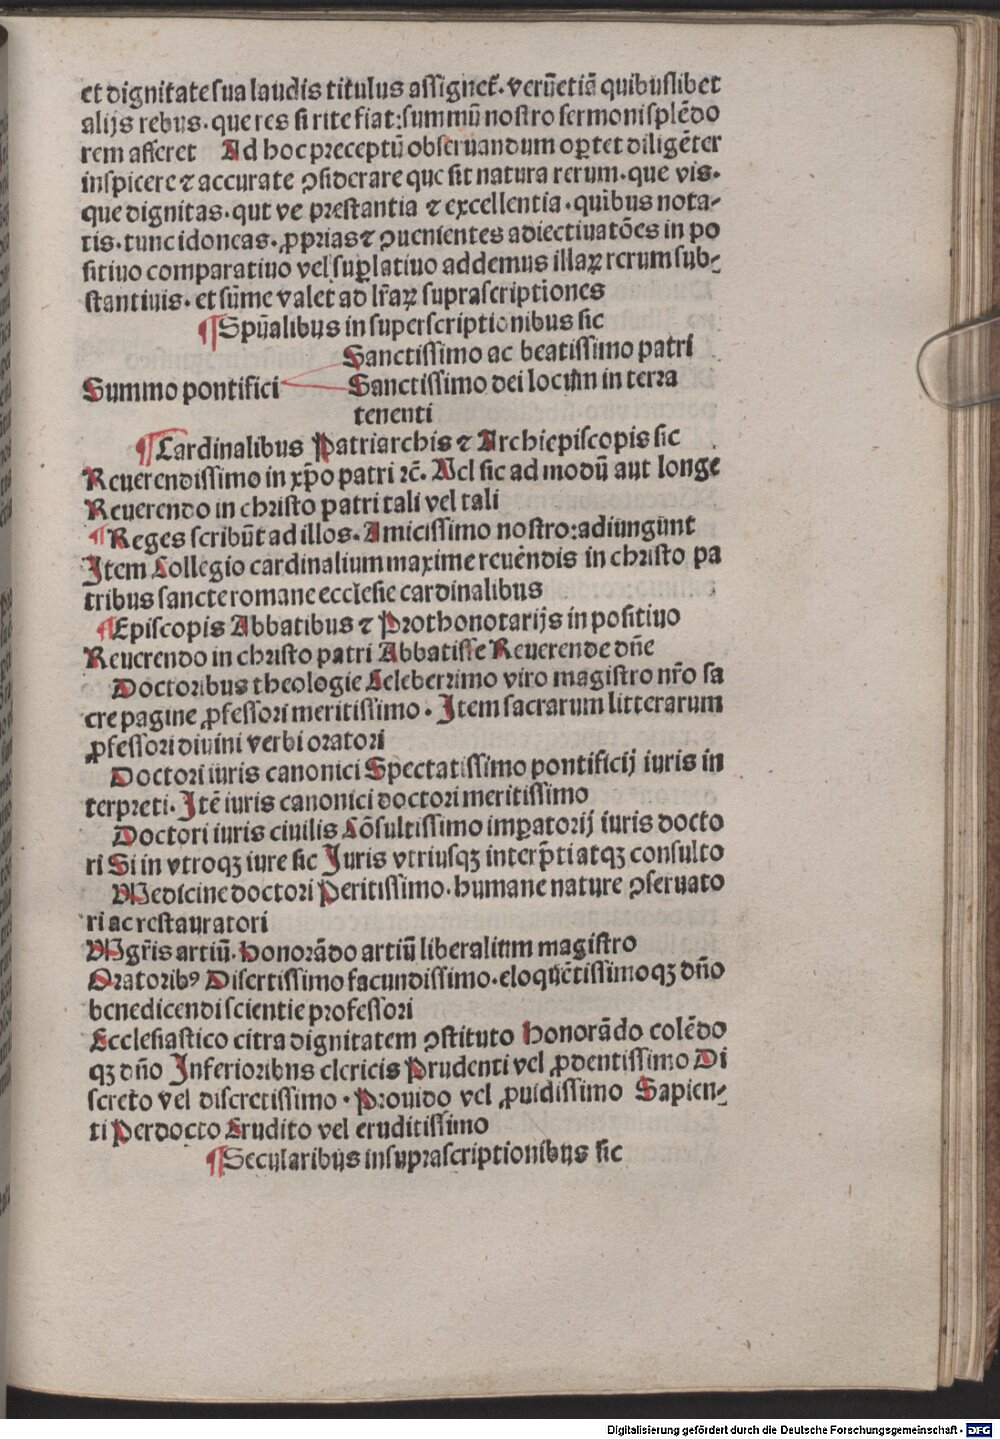 et dignitate sua laudis titulus assignet̃. verũetiã quibuslibet
alijs rebus. que res si rite fiat: summũ nostro sermoni splẽdo
rem afferet Ad hoc preceptũ obseruandum oꝑtet diligẽter
inspicere ⁊ accurate ꝯsiderare que sit natura rerum. que vis.
que dignitas. qut ve prestantia ⁊ excellentia. quibus nota⸗
tis. tunc idoneas. ꝓprias ⁊ ꝯuenientes adiectiuatões in po
sitiuo comparatiuo vel suꝑlatiuo addemus illaꝝ rerum sub⸗
stantiuis. et sũme valet ad lr̃aꝝ suprascriptiones
¶Spũalibus in superscriptionibus sic
Sanctissimo ac beatissimo patri
Summo pontifici Sanctissimo dei locum in terra
tenenti
¶Cardinalibus Patriarchis ⁊ Archiepiscopis sic
Reuerendissimo in xp̃o patri ⁊c̃. Uel sic ad modũ aut longe
Reuerendo in christo patri tali vel tali
¶Reges scribũt ad illos. Amicissimo nostro: adiungunt
Item Collegio cardinalium maxime reuẽndis in christo pa
tribus sancte romane ecclesie cardinalibus
¶Episcopis Abbatibus ⁊ Prothonotarijs in positiuo
Reuerendo in christo patri Abbatisse Reuerende dñe
Doctoribus theologie Celeberrimo viro magistro nr̃o sa
cre pagine ꝓfessori meritissimo. Item sacrarum litterarum
ꝓfessori diuini verbi oratori
Doctori iuris canonici Spectatissimo pontificij iuris in
terpreti. Itẽ iuris canonici doctori meritissimo
Doctori iuris ciuilis Cõsultissimo imꝑatorij iuris docto
ri Si in vtroqꝫ iure sic Juris vtriusqꝫ interp̃ti atqꝫ consulto
Medicine doctori Peritissimo. humane nature ꝯseruato
ri ac restauratori
Mgr̃is artiũ. Honorãdo artiũ liberalium magistro
Oratoribꝰ Disertissimo facundissimo. eloquẽtissimoqꝫ dño
benedicendi scientie professori
Ecclesiastico citra dignitatem ꝯstituto Honorãdo colẽdo
qꝫ dño Inferioribns clericis Prudenti vel ꝓdentissimo Di
screto vel discretissimo. Prouido vel ꝓuidissimo Sapien⸗
ti Perdocto Erudito vel eruditissimo
¶Secularibus in suprascriptionibus sic
Digitalisierung gefördert durch die Deutsche Forschungsgemeinschaft - DFG